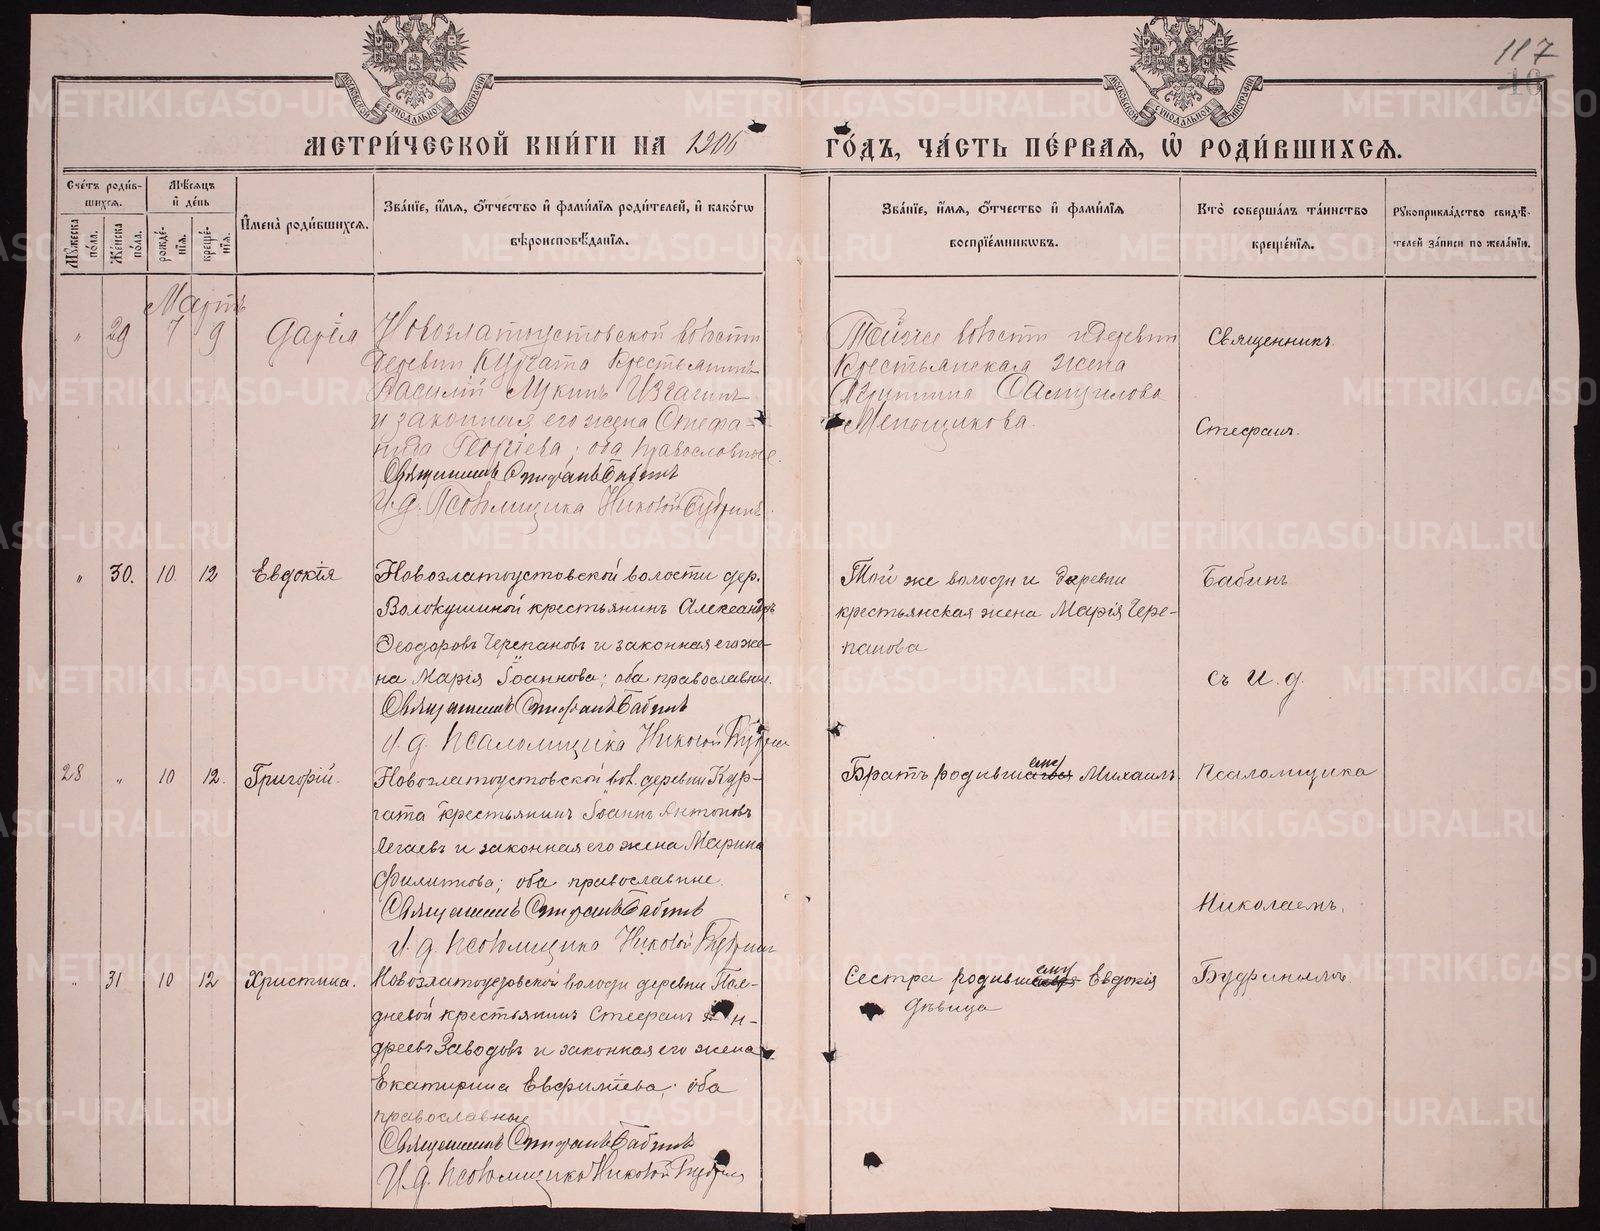 117
МОСКОВСКОЙ СѴНОДАЛЬНОЙ ТИПОГРАФІИ
МОСКОВСКОЙ СѴНОДАЛЬНОЙ ТИПОГРАФІИ
МЕТРИ́ЧЕСКОЙ КНИ́ГИ НА 1906
ГО́ДЪ, ЧА́СТЬ ПЕ́РВАЯ, Ѡ҆ РОДИ́ВШИХСЯ.
Сче́тъ роди́в-
шихся.
Мѣ́сяцъ
и҆ де́нь
Му́жеска по́ла.
Же́нска по́ла.
рожде́-нія.
креще́-нія.
И҆мена̀ роди́вшихся.
Зва́ніе, и҆́мя, ѻ҆́тчество и҆ фами́лія роди́телей, и҆ како́гѡ
вѣроисповѣ́данія.
Зва́ніе, и҆́мя, ѻ҆́тчество и҆ фами́лія
воспріе́мниковъ.
Кто̀ соверша́лъ та́инство
креще́нія.
Рукоприкла́дство свидѣ́-
телей за́писи по жела́нію.
Мартъ
" 29 7 9 Дарія
Новозлатоустовской волости
деревни Кургата крестьянинъ
Василій Лукинъ Изгагинъ
и законная его жена Стефа-
нида Георгіева; оба православные.
Священникъ Стефанъ Бабинъ
И. д. Псаломщика Николай Будринъ.
Той же волости и деревни
крестьянская жена
Агрипина Самуилова
Меньщикова.
Священникъ
Стефанъ
" 30. 10 12 Евдокія
Новозлатоустовской волости дер.
Волокушиной крестьянинъ Александръ
Ѳеодоровъ Черепановъ и законная его же-
на Марія Іоаннова; оба православны.
Священникъ Стефанъ Бабинъ
И. д. псаломщика Николай Будринъ
Той же волости и деревни
крестьянская жена Марія Чере-
панова
Бабинъ
съ И. д.
28 " 10 12. Григорій.
Новозлатоустовской вол. деревни Кур-
гата крестьянинъ Іоаннъ Антоновъ
Легаевъ и законная его жена Марина
Филиппова; оба православные.
Священникъ Стефанъ Бабинъ
И. д. псаломщика Николай Будринъ
Братъ родившагося Михаилъ.
Псаломщика
Николаемъ.
" 31 10 12 Христина.
Новозлатоустовской волости деревни Пол-
дневой крестьянинъ Стефанъ Ан-
дреевъ Заводовъ и законная его жена
Екатерина Евфиміева; оба
православные
Священникъ Стефанъ Бабинъ
И. д. псаломщика Николай Будринъ
Сестра родившейся Евдокія
дѣвица
Будринымъ.
METRIKI.GASO-URAL.RU